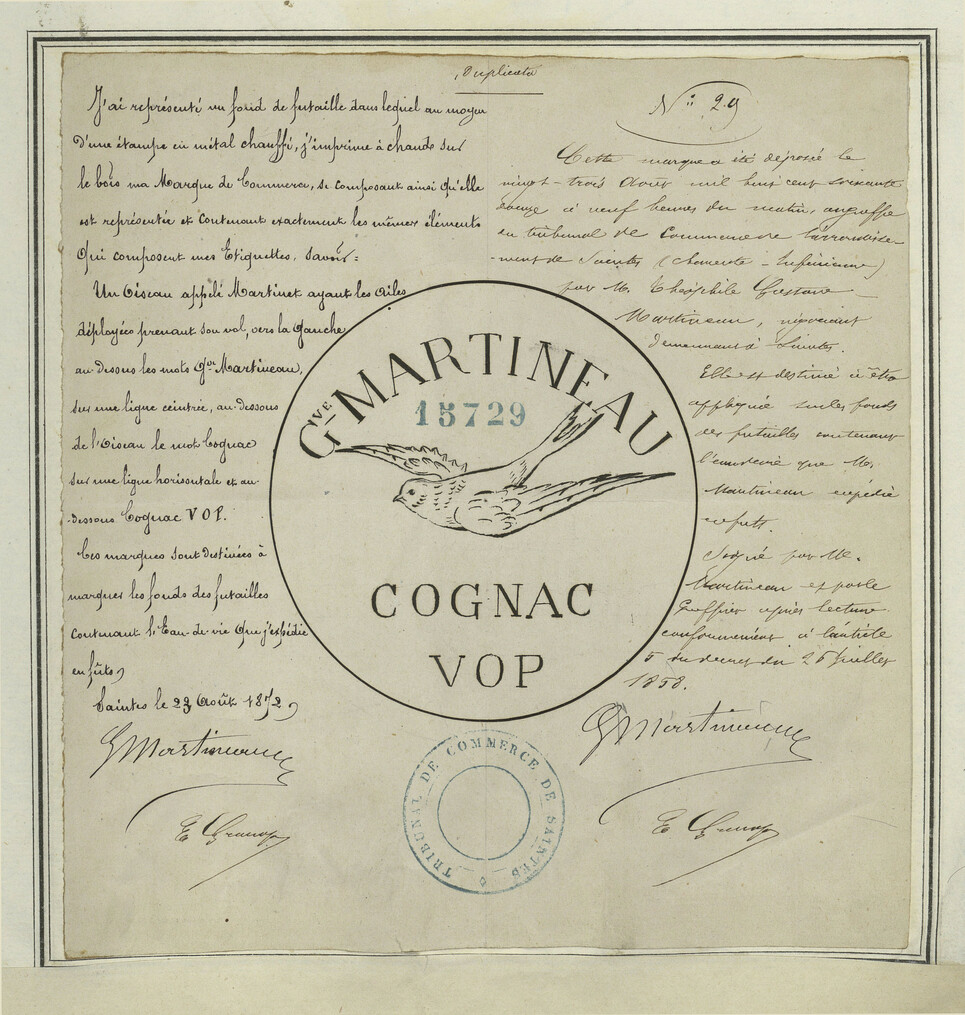 Duplicata
J'ai représenté un fond de futaille dans lequel au moyen
d'une étampe en métal chauffé, j'imprime à chaud sur
le bois ma Marque de Commerce, se composant ainsi qu'elle
est représentée et Contenant exactement les mêmes éléments
qui composent mes Etiquettes, Savoir =
Un Oiseau appelé Martinet ayant les Ailes
déployées prenant son vol, vers la Gauche
au-dessus les mots Gve Martineau,
sur une ligne ceintrée, au-dessous
de l'Oiseau le mot Cognac
sur une ligne horisontale et au-
dessous Cognac VOP.
Ces marques sont destinées à
marquer les fonds des futailles
contenant l'Eau-de-vie que j'expédie
en fûts,
Saintes le 23 Août 1872,
GMartineau
N° 29
Cette marque a été déposée le
vingt-trois Août mil huit cent soixante
douze à neuf heures du matin, au greffe
du tribunal de Commerce de l'arrondisse-
-ment de Saintes (Charente-Inférieure)
par M. Théophile Gustave
Martineau, négociant
demeurant à Saintes.
Elle est destinée à être
appliquée sur les fonds
des futailles contenant
l'eau de vie que M.
Martineau expédie
en futs.
Signé par M.
Martineau et par le
Greffier après lecture
conformément à l'article
5 du décret du 26 Juillet
1858.
GMartineau
Gve MARTINEAU
15729
COGNAC
VOP
TRIBUNAL DE COMMERCE DE SAINTES